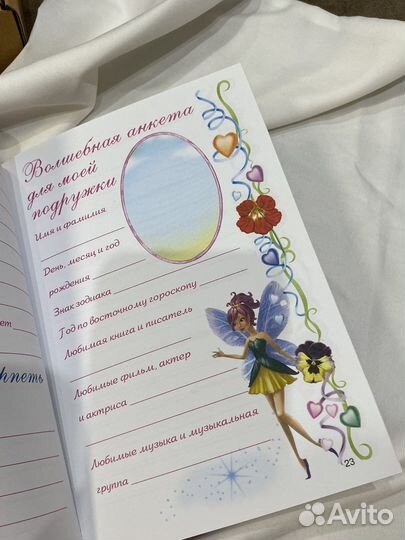 Волшебная анкета
для моей
подружки
Имя и фамилия
День, месяц и год
рождения
Знак зодиака
Год по восточному гороскопу
Любимая книга и писатель
Любимые фильм, актер
и актриса
Любимые музыка и музыкальная
группа
23
Avito